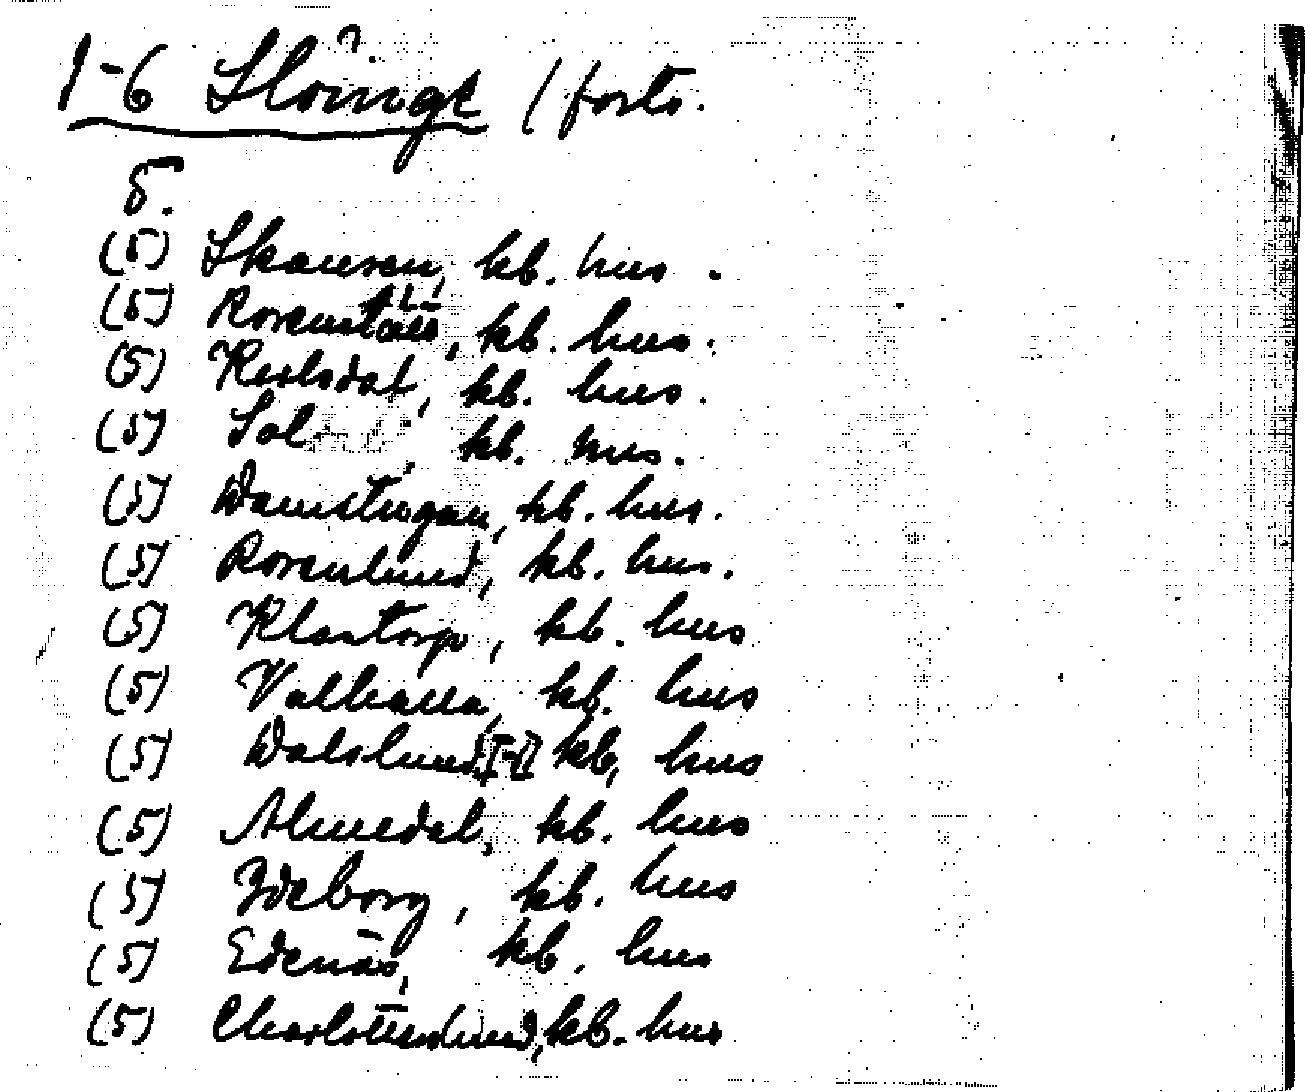 1-6 Slöinge /forts.
5.
(5) Skansen, kb. hus.
(5) kb. hus.
(5) Karlsdal, kb. hus.
(5) Sol , kb. hus.
(5) Damstugan, kb. hus.
(5) Rosenlund, kb. hus.
(5) Klastorp, kb. hus
(5) Valhalla, kb. hus
(5) Dalslund, I-II kb, hus
(5) Almedal, kb. hus
(5) Ideborg, kb. hus
(5) Edenäs, kb. hus
(5) Charlottenlund, kb. hus